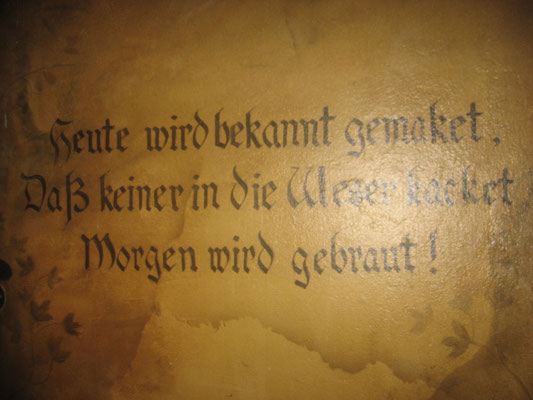 Heute wird bekannt gemaket,
Daß keiner in die Weser kacket
Morgen wird gebraut!